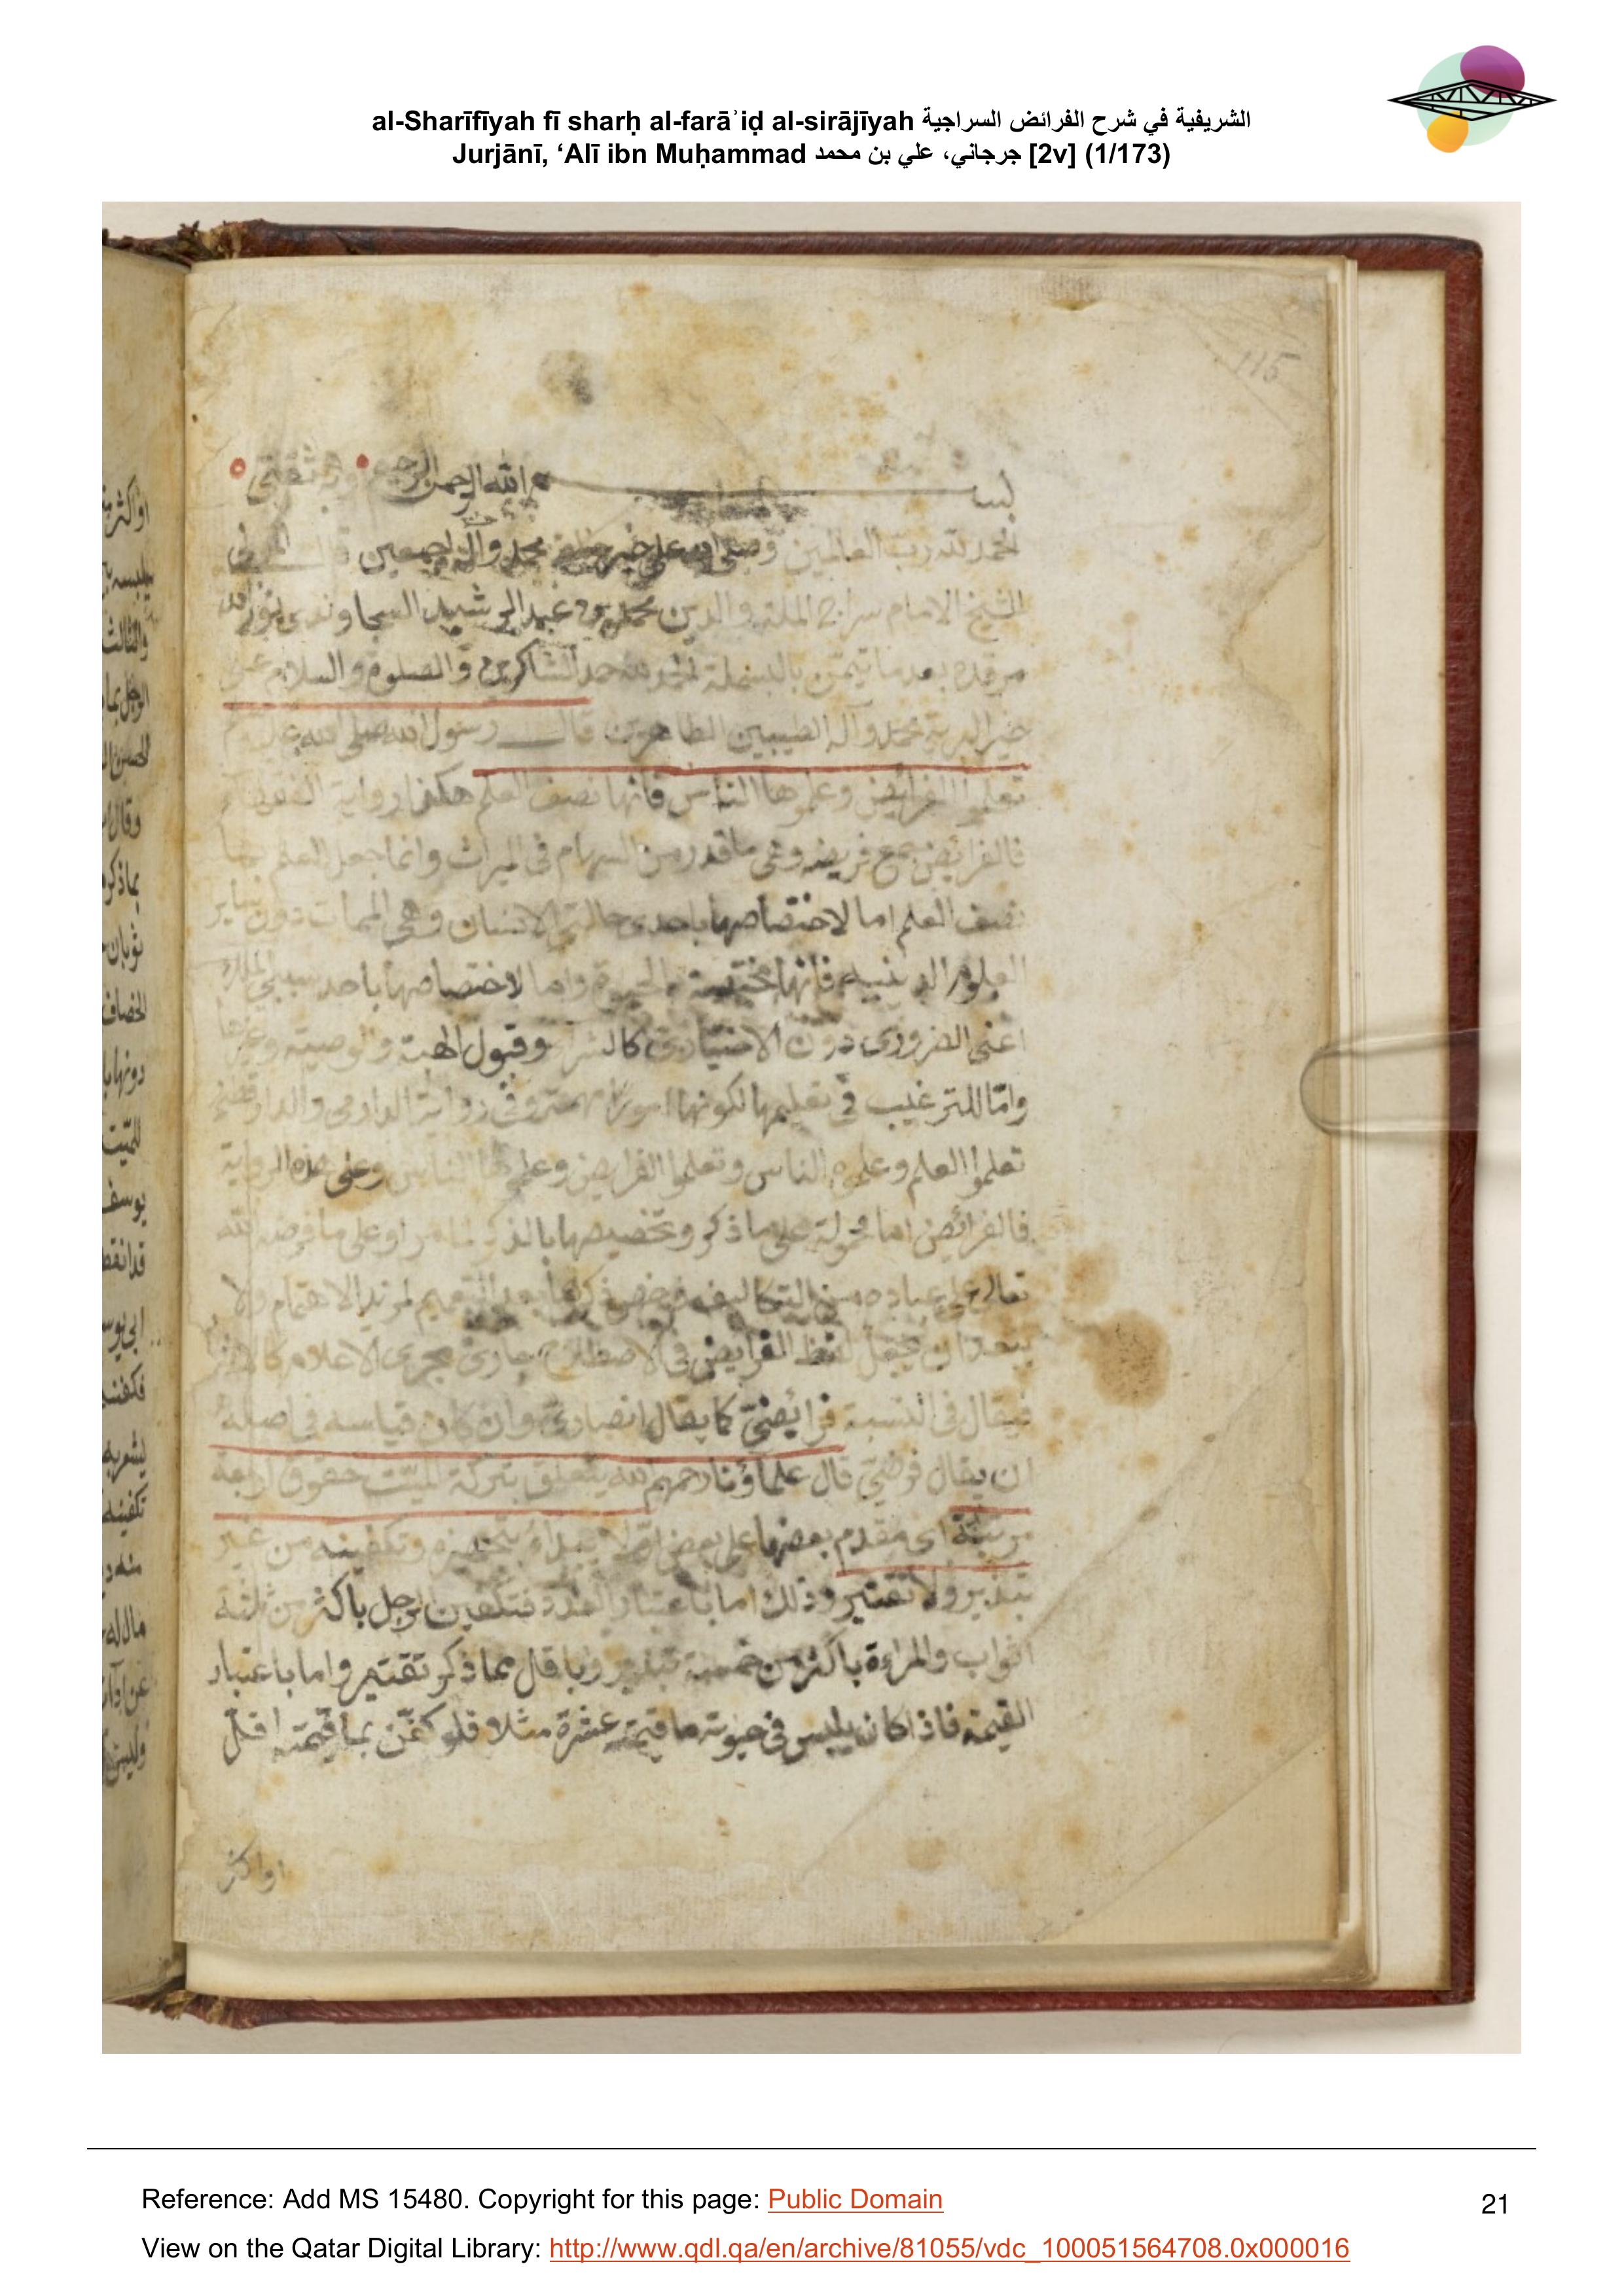 al-Sharīfīyah fī sharḥ al-farāʾiḍ al-sirājīyah الشريفية في شرح الفرائض السراجية
Jurjānī, ‘Alī ibn Muḥammad جرجاني، علي بن محمد [2v] (1/173)
115
بسم الله الرحمن الرحيم وبه ثقتي
الحمد لله رب العالمين وصلى الله على خير خلقه محمد وآله اجمعين قال
الشيخ الامام سراج الملة والدين محمد بن عبد الرشيد السجاوندي نور الله
مرقده بعد ما تيمّن بالبسملة الحمد لله حمد الشاكرين والصلوة والسلام على
خير البرية محمد وآله الطيبين الطاهرين قال رسول الله صلى الله عليه وسلم
تعلموا الفرايض وعلموها الناس فانها نصف العلم هكذا رواية الفقهاء
فالفرائض جمع فريضة وهي ما قدر من السهام في الميراث وانما جعل العلم بها
نصف العلم اما لاختصاصها باحدى حالتي الانسان وهي الممات دون سائر
العلوم الدينية فانها مختصة بالحيوة واما لاختصاصها باحد سببي الملك
اعني الضروري دون الاختياري كالشراء وقبول الهبة والوصية وغيرها
وامّا للترغيب في تعليمها لكونها امورا مهمة وفي رواية الدارمي والدارقطني
تعلموا العلم وعلموه الناس وتعلموا الفرايض وعلموها الناس وعلى هذه الرواية
فالفرائض اما محمولة على ما ذكر وتخصيصها بالذكر لما مر او على ما فرضه الله
تعالى على عباده من التكاليف فخص ذكرها بعد التعميم لمزيد الاهتمام ولا
يبعد ان يجعل لفظ الفرايض في الاصطلاح جاريًا مجرى الاعلام كالانصار
فيقال في النسبة فرائضيّ كما يقال انصاريّ وان كان قياسه في اصله
ان يقال فرضيّ قال علماؤنا رحمهم الله يتعلق بتركة الميّت حقوق اربعة
مرتبة اى مقدم بعضها على بعض اوّلا يبدأ بتجهيزه وتكفينه من غير
تبذير ولا تقتير وذلك اما باعتبار العدد فتكفين الرجل باكثر من ثلثة
اثواب والمراءة باكثر من خمسة تبذير وباقل مما ذكر تقتير واما باعتبار
القيمة فاذا كان يلبس في حيوته ما قيمته عشرة مثلا فلو كفّن بما قيمته اقلّ
او اكثر
Reference: Add MS 15480. Copyright for this page: Public Domain
View on the Qatar Digital Library: http://www.qdl.qa/en/archive/81055/vdc_100051564708.0x000016
21